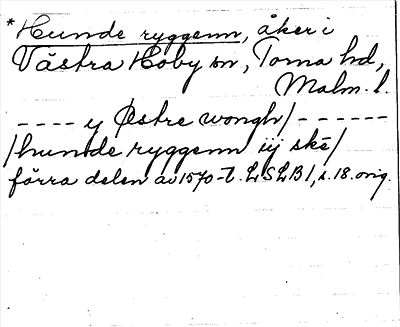 *Hunde ryggenn, åker i
Västra Hoby sn, Torna hd,
Malm. l.
---- y Østre wongh/------
/hunde ryggenn iij ske/
förra delen av 1570-t. LSLB1, s. 18. orig.